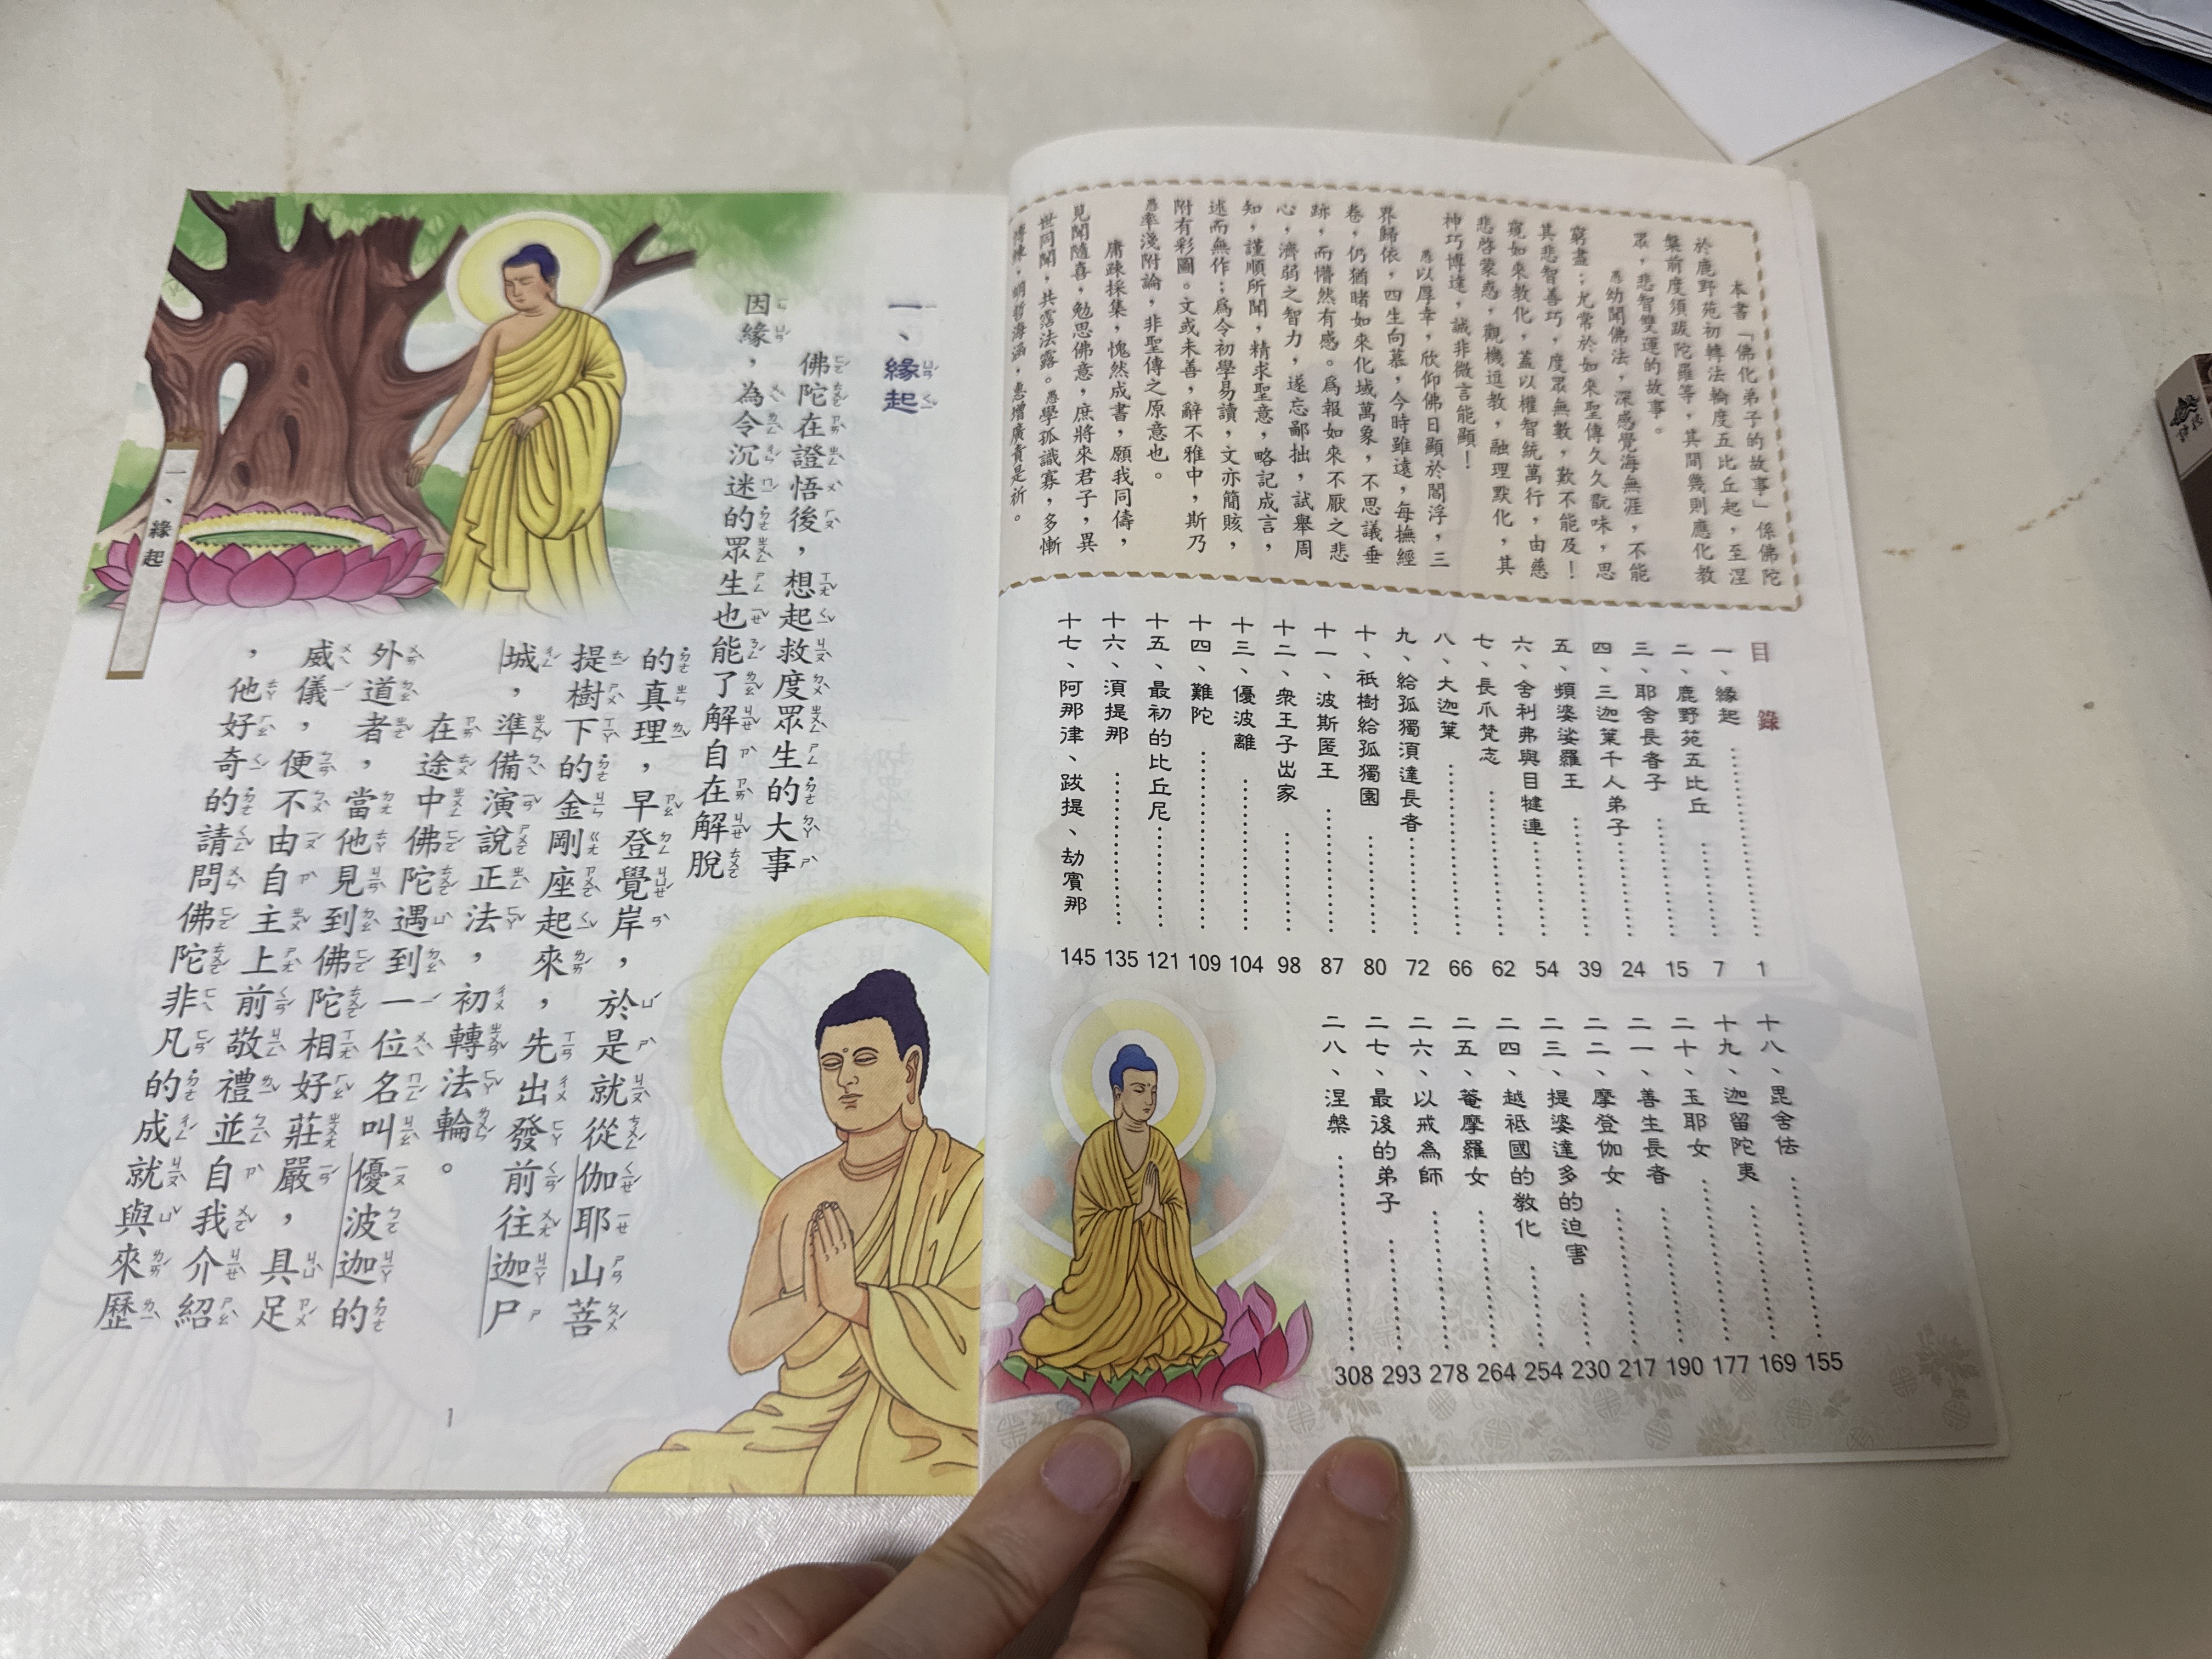 本書「佛化弟子的故事」係佛陀
於鹿野苑初轉法輪度五比丘起，至涅
槃前度須跋陀羅等，其間幾則應化教
眾，悲智雙運的故事。
愚幼聞佛法，深感覺海無涯，不能
窮盡；尤常於如來聖傳久久翫味，思
其悲智善巧，度眾無數，歎不能及！
窺如來教化，蓋以權智統萬行，由慈
悲啓蒙惑，觀機逗教，融理默化，其
神巧博達，誠非微言能顯！
愚以厚幸，欣仰佛日顯於閻浮，三
界歸依，四生向慕，今時雖遠，每撫經
卷，仍猶睹如來化域萬象，不思議垂
跡，而懵然有感。爲報如來不厭之悲
心，濟弱之智力，遂忘鄙拙，試舉周
知，謹順所聞，精求聖意，略記成言，
述而無作；爲令初學易讀，文亦簡賅，
附有彩圖。文或未善，辭不雅中，斯乃
愚率淺附論，非聖傳之原意也。
庸疎採集，愧然成書，願我同儔，
見聞隨喜，勉思佛意，庶將來君子，異
世同聞，共霑法露。愚學孤識寡，多慚
目錄
一、緣起 1
二、鹿野苑五比丘 7
三、耶舍長者子 15
四、三迦葉千人弟子 24
五、頻婆娑羅王 39
六、舍利弗與目犍連 54
七、長爪梵志 62
八、大迦葉 66
九、給孤獨須達長者 72
十、祇樹給孤獨園 80
十一、波斯匿王 87
十二、眾王子出家 98
十三、優波離 104
十四、難陀 109
十五、最初的比丘尼 121
十六、須提那 135
十七、阿那律、跋提、劫賓那 145
十八、毘舍佉 155
十九、迦留陀夷 169
二十、玉耶女 177
二一、善生長者 190
二二、摩登伽女 217
二三、提婆達多的迫害 230
二四、越祗國的教化 254
二五、菴摩羅女 264
二六、以戒為師 278
二七、最後的弟子 293
二八、涅槃 308
一、緣起
佛陀在證悟後，想起救度眾生的大事
因緣，為令沉迷的眾生也能了解自在解脫
的真理，早登覺岸，於是就從伽耶山菩
提樹下的金剛座起來，先出發前往迦尸
城，準備演說正法，初轉法輪。
在途中佛陀遇到一位名叫優波迦的
外道者，當他見到佛陀相好莊嚴，具足
威儀，便不由自主上前敬禮並自我介紹
，他好奇的請問佛陀非凡的成就與來歷
一、緣起
1